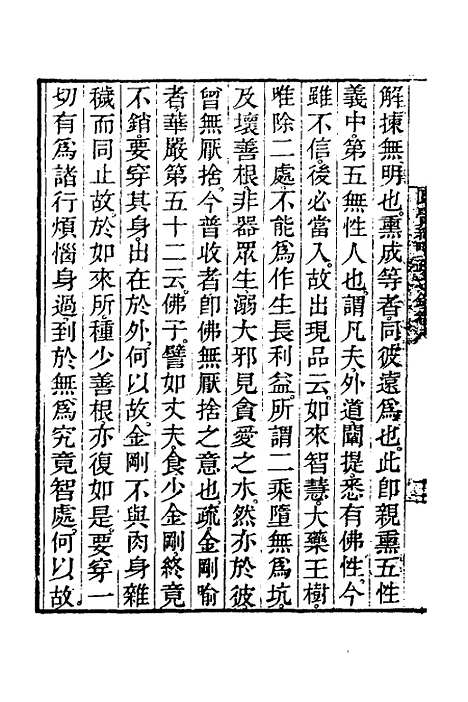 解揀無明也。熏成等者。同彼遠為也。此即親熏五性
義中。第五無性人也。謂凡夫外道闡提。悉有佛性。今
雖不信。後必當入。故出現品云。如來智慧。大藥王樹。
唯除二處。不能為作生長利益。所謂二乘墮無為坑。
及壞善根。非器眾生溺大邪見貪愛之水。然亦於彼
曾無厭捨。今普收者。即佛無厭捨之意也。疏。金剛喻
者。華嚴第五十二云。佛子。譬如丈夫。食少金剛。終竟
不銷。要穿其身。出在於外。何以故。金剛不與肉身雜
穢而同止故。於如來所。種少善根。亦復如是。要穿一
切有為諸行煩惱身過。到於無為究竟智處。何以故。